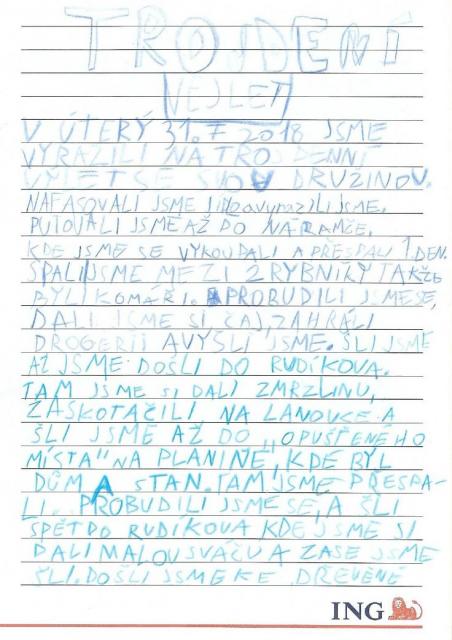 TROJDENÍ
VEJLET
V ÚTERÝ 31. 7 2018 JSME
VYRAZILI NA TROJDENNÍ
VÝLET SE SVOU DRUŽINOU.
NAFASOVALI JSME JÍDLO a vyrazili jsme.
PUTOVALI JSME AŽ DO NÁRAMČE,
KDE JSME SE VYKOUPALI A PŘESPALI 1 DEN.
SPALI JSME MEZI 2 RYBNÍKY TAKŽE
BYLI KOMÁŘI. PROBUDILI JSME SE,
DALI JSME SI ČAJ, ZAHRÁLI
DROGERII A VYŠLI JSME. ŠLI JSME
AŽ JSME DOŠLI DO RUDÍKOVA.
TAM JSME SI DALI ZMRZLINU,
ZASKOTAČILI NA LANOVCE A
ŠLI JSME AŽ DO „OPUŠTĚNÉHO
MÍSTA" NA PLANINĚ, KDE BYL
DŮM A STAN. TAM JSME PŘESPA-
LI. PROBUDILI JSME SE, A ŠLI
SPĚT DO RUDÍKOVA KDE JSME SI
DALI MALOU SVAČU A ZASE JSME
ŠLI. DOŠLI JSME KE DŘEVĚNÉ
ING